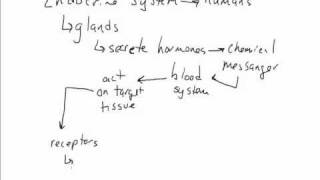 Endocrine system → humans
↳glands
↳secrete hormones → chemical
messanger
blood
system
act
on target
tissue
receptors
↳